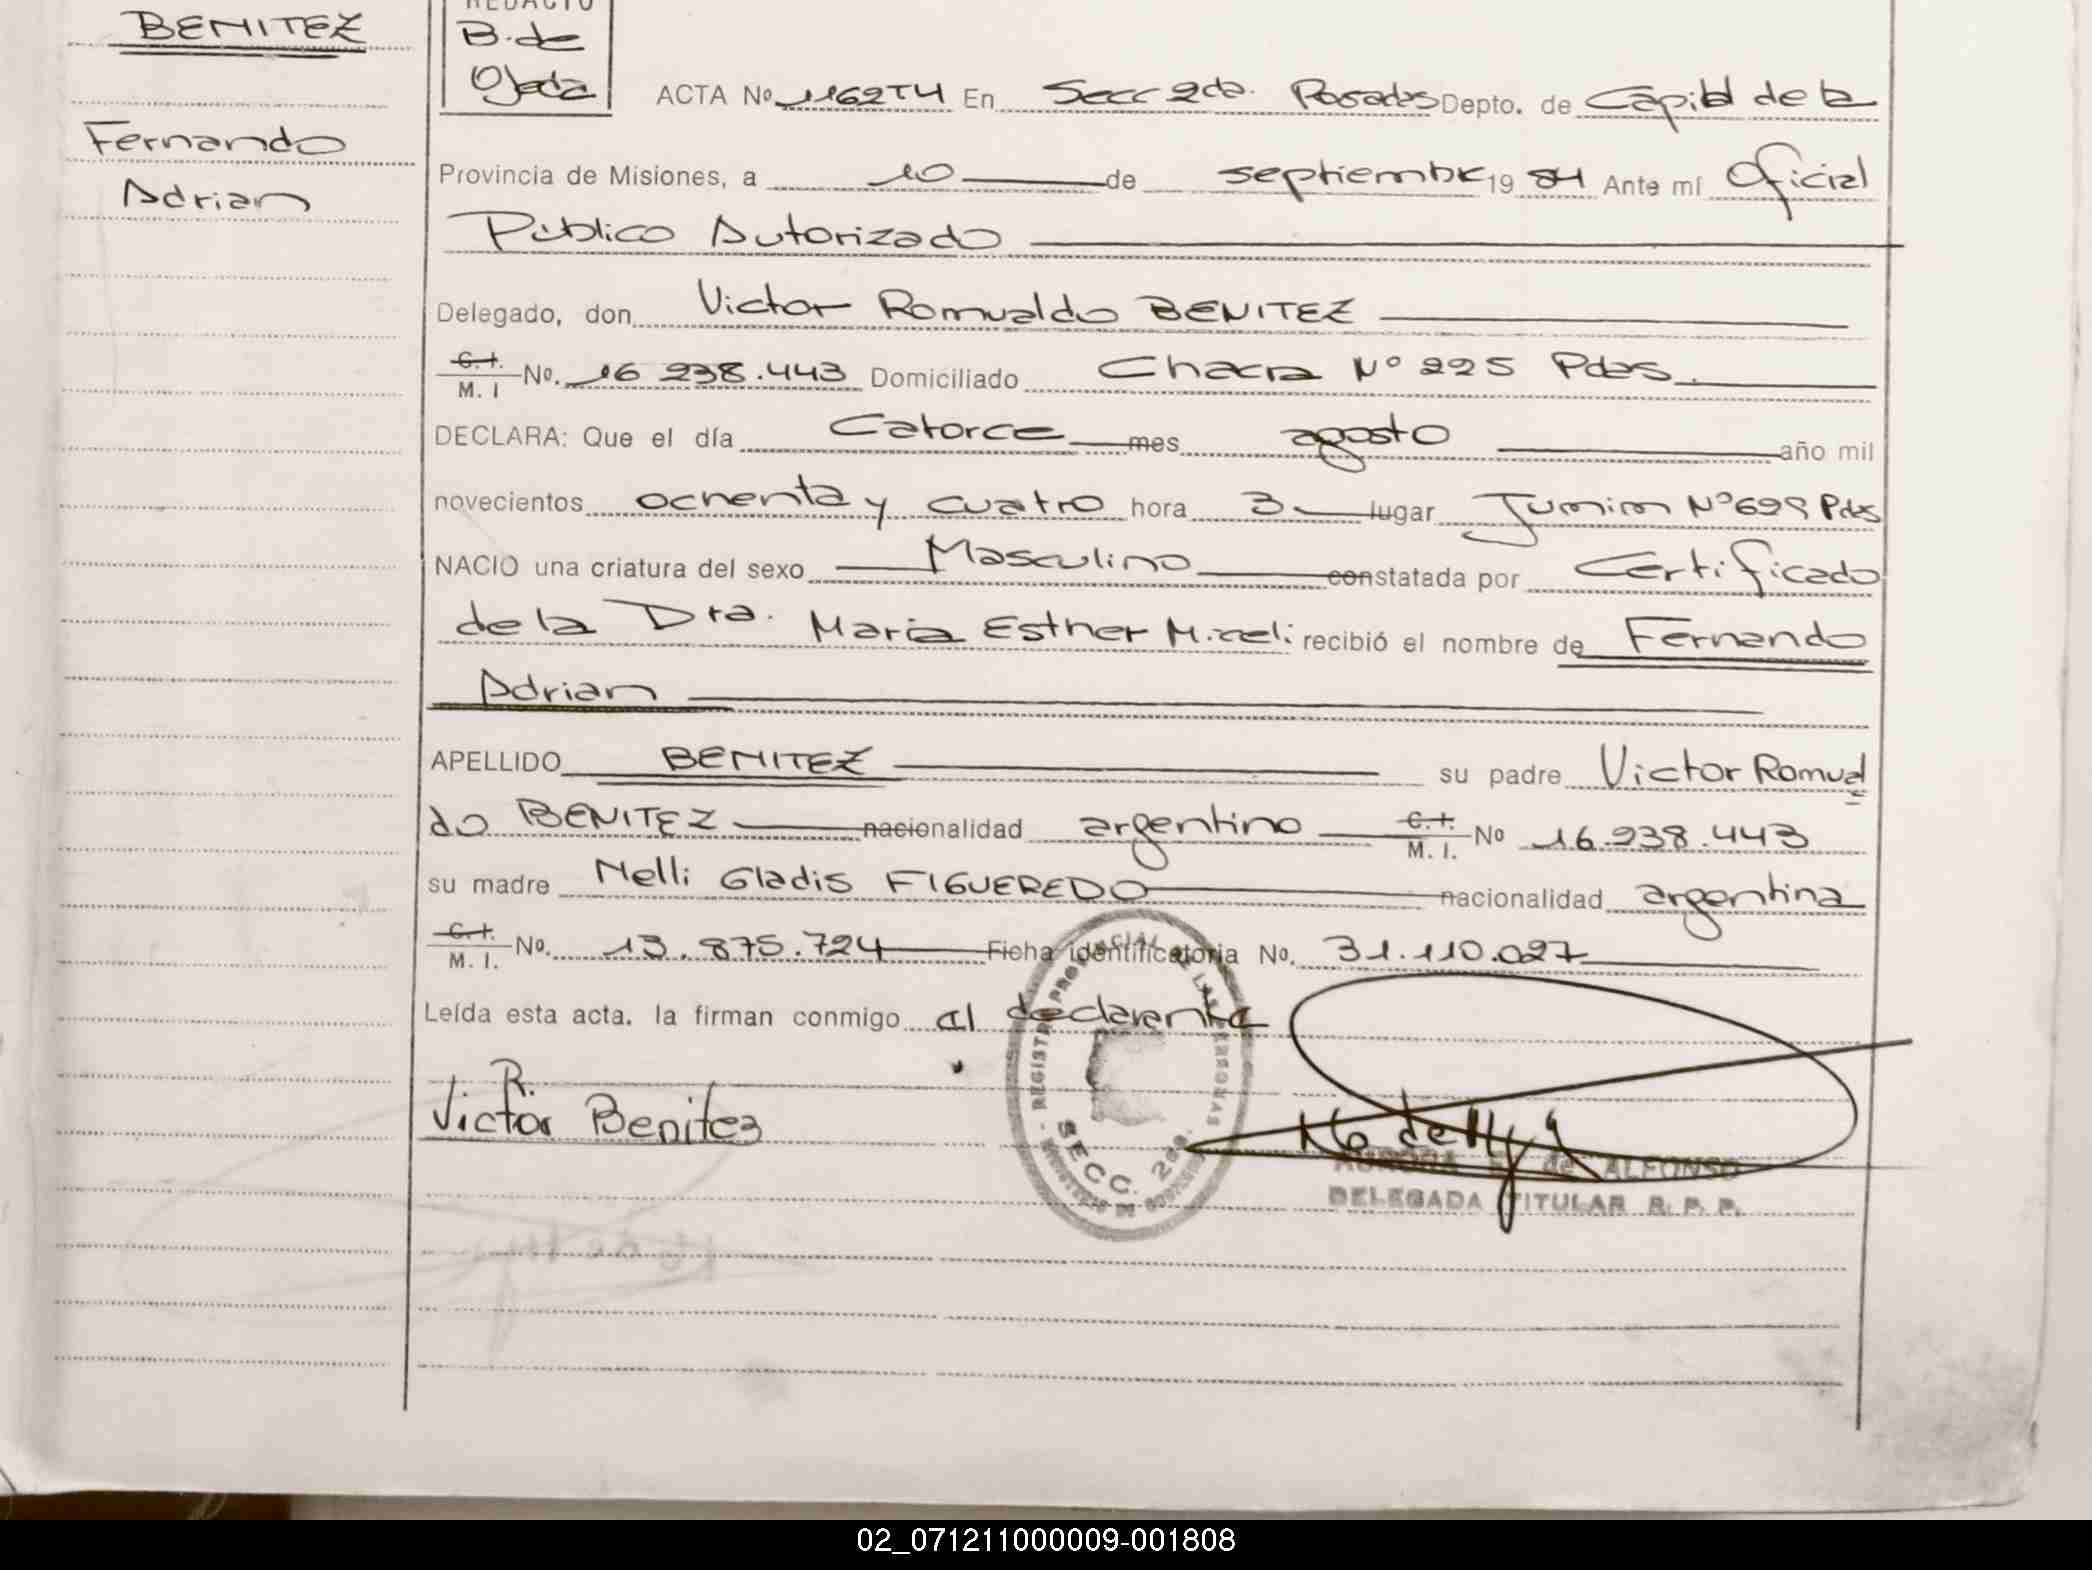 BENITEZ
Fernando
Adrian
REDACTO
B. de
Ojeda
ACTA Nº 1162T4 En Secc 2da. Posadas Depto. de Capital de la
Provincia de Misiones, a 10 de septiembre 1984 Ante mí Oficial
Público Autorizado
Delegado, don Victor Romualdo BENITEZ
C.I. M. I Nº. 16 238.443 Domiciliado Chacra Nº 225 Pdas.
DECLARA: Que el día Catorce mes agosto año mil
novecientos ochenta y cuatro hora 3 lugar Nº 699 Pdas
NACIO una criatura del sexo Masculino constatada por Certificado
de la Dra. Maria Esther Miceli recibió el nombre de Fernando
Adrian
APELLIDO BENITEZ su padre Victor Romual
do BENITEZ nacionalidad argentino C.I. M. I. Nº 16.238.443
su madre Nelli Gladis FIGUEREDO nacionalidad argentina
C.I. M. I. Nº. 13.875.724 Ficha identificatoria No. 31.110.027
Leída esta acta. la firman conmigo al declarante
R.
Victor Benitez
REGISTRO PROVINCIAL DE LAS PERSONAS
SECC. 2da.
MINISTERIO DE GOBIERNO
AURORA de ALFONSO
DELEGADA TITULAR R. P. P.
02_071211000009-001808